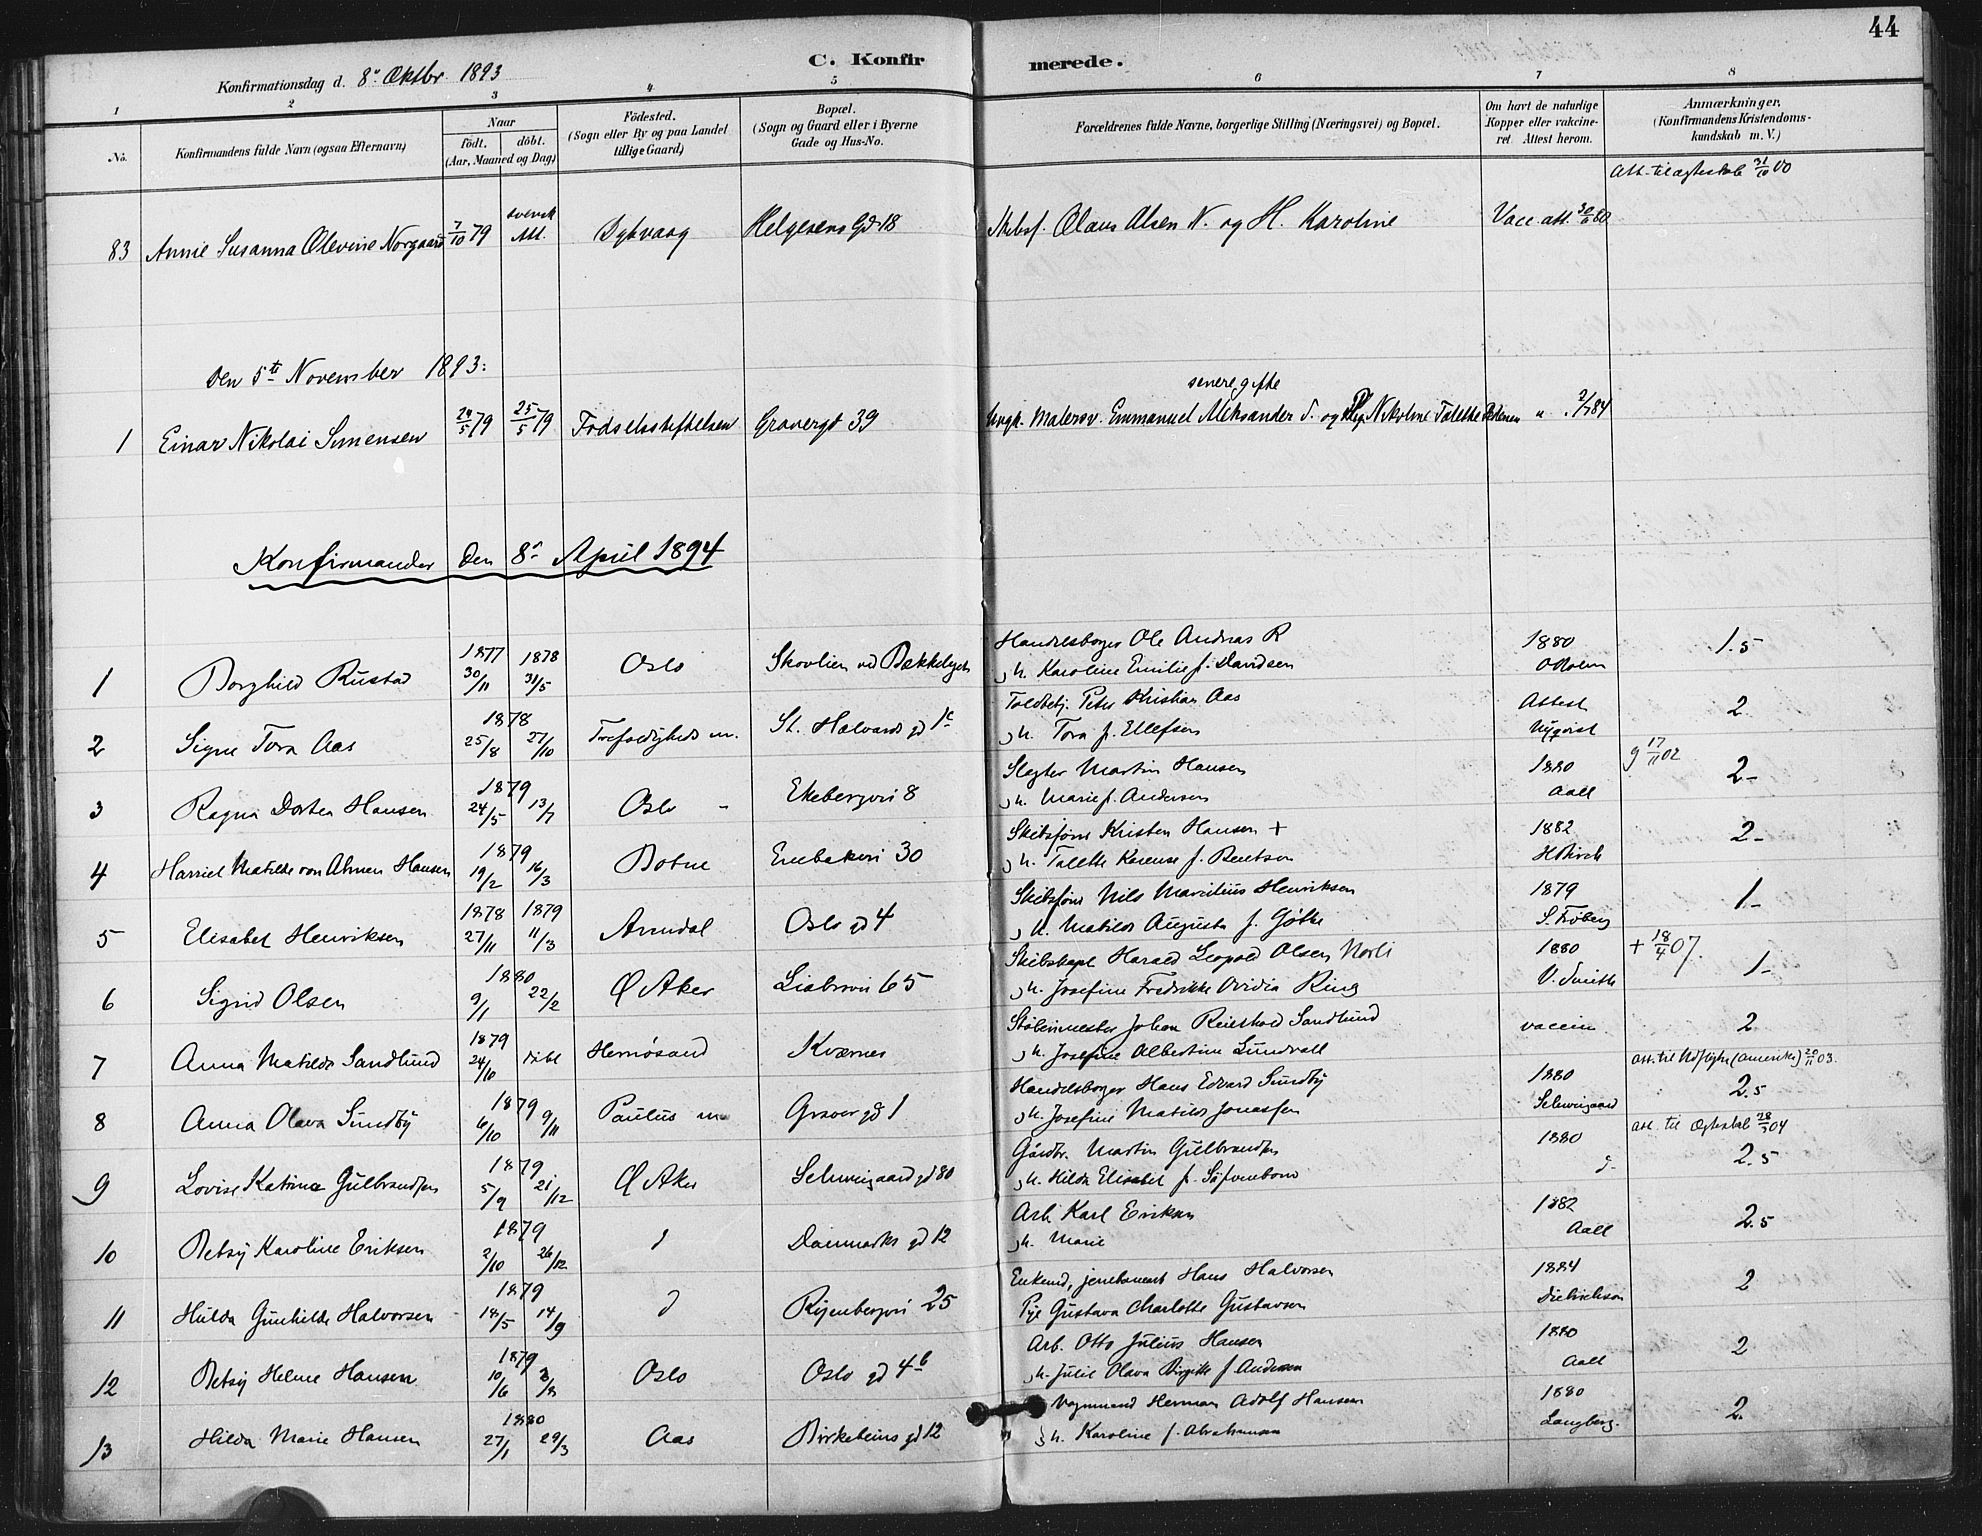 44
C. Konfirmerede.
Konfirmationsdag d. 8de Oktbr 1893
1 2 3 4 5 6 7 8
No.
Konfirmandens fulde Navn (ogsaa Efternavn)
Naar
født. døbt.
(Aar, Maaned og Dag)
Fødested.
(Sogn eller By og paa Landet
tillige Gaard)
Bopæl.
(Sogn og Gaard eller i Byerne
Gade og Hus-No.
Forældrenes fulde Navne, borgerlige Stilling (Næringsvei) og Bopæl.
Om havt de naturlige
Kopper eller vakcine-
ret. Attest herom.
Anmærkninger.
(Konfirmandens Kristendoms-
kundskab m. V.)
Att. til ægteskab 31/10 00
83 Annie Susanna Olevine Norgaard 7/10 79 svensk Att. Dybvaag Helgesens Gd 18 Olaus Olsen N. og H. Karoline Vacc att. 30/6 80
Den 5te November 1893:
senere gifte
1 Einar Nikolai Simensen 24/5 79 25/5 79 Fødselsstiftelsen Gravergd 39 Ungk. Malersv. Emmanuel Aleksander S. og Pige Nikoline Talette Pedersen " 2/7 84
Konfirmander den 8de April 1894
1 Borghild Rustad 1877 30/11 1878 31/5 Oslo Skovlien ved Bekkelaget
Handelsborger Ole Andreas R 1880 1.5
h. Karoline Emilie f. Davidsen
2 Signe Tora Aas 1878 25/8 27/10 Trefoldigheds m. St. Halvards gd 1c
Toldbetj. Peter Kristian Aas Attest 2
h. Tora f. Ellefsen Nyqvist
3 Ragna Dortea Hansen 1879 24/5 13/7 Oslo Ekebergvei 8
Slagter Martin Hansen 1880 g 17/11 02 2-
h. Marie f. Andersen Aall
4 Harriet Matilde von Ahnen Hansen 1879 19/2 16/3 Botne Enebakvei 30
Skibsfører Kristen Hansen + 1882 2-
h. Talette Karense f. Bentsen H Kirch
5 Elisabet Henriksen 1878 27/11 1879 11/3 Arendal Oslo gd 4
Skibsfører Nils Marcelius Henriksen 1879 1-
h. Matilde Augusta f. Gøtke S. Frøberg
6 Sigrid Olsen 1880 9/1 22/2 Ø Aker Liabrovei 65
Skibskapt Harald Leopold Olsen Norli 1880 + 18/4 07. 1-
h. Josefine Fredrikke Ovidia Ring V. Smith
7 Anna Matilde Sandlund 1879 24/10 Hernøsand Kværner
Støbermester Johan Reinhold Sandlund vaccin. 2
h. Josefine Albertine Lundvall
8 Anna Olava Sundby 1879 6/10 9/11 Paulus m Graver gd 1
Att. til Udflytn (Amerika) 20/11 03.
Handelsborger Hans Edvard Sundby 1880 2.5
h. Josefine Matilde Jonassen Schweigaard
9 Lovise Katrine Gulbrandsen 1879 5/9 21/12 Ø Aker Schweigaard gd 80
Att. til Ægteskab 28/3 04
Gårdbr. Martin Gulbrandsen 1880 2.5
h. Hilda Elisabet f. Säfvenbom
10 Betsy Karoline Eriksen 1879 2/10 26/12 Danmarks gd 12
Arb. Karl Eriksen 1882 2.5
h. Marie Aall
11 Hulda Gunhilde Halvorsen 1879 18/5 14/9 Ryenbergvei 25
Enkemd, jernbanearb Hans Halvorsen 1884 2
Pige Gustava Charlotte Gustavsen Dietrichson
12 Betsy Helene Hansen 1879 10/6 3/8 Oslo Oslo gd 4b
Arb. Otto Julius Hansen 1880 2
h. Julie Olava Birgitte f. Andersen Aall
13 Hilda Marie Hansen 1880 27/1 29/3 Aas Birkebeiner gd 12
Vognmand Herman Adolf Hansen 1880 2.
h. Karoline f. Abrahamsen Langberg.